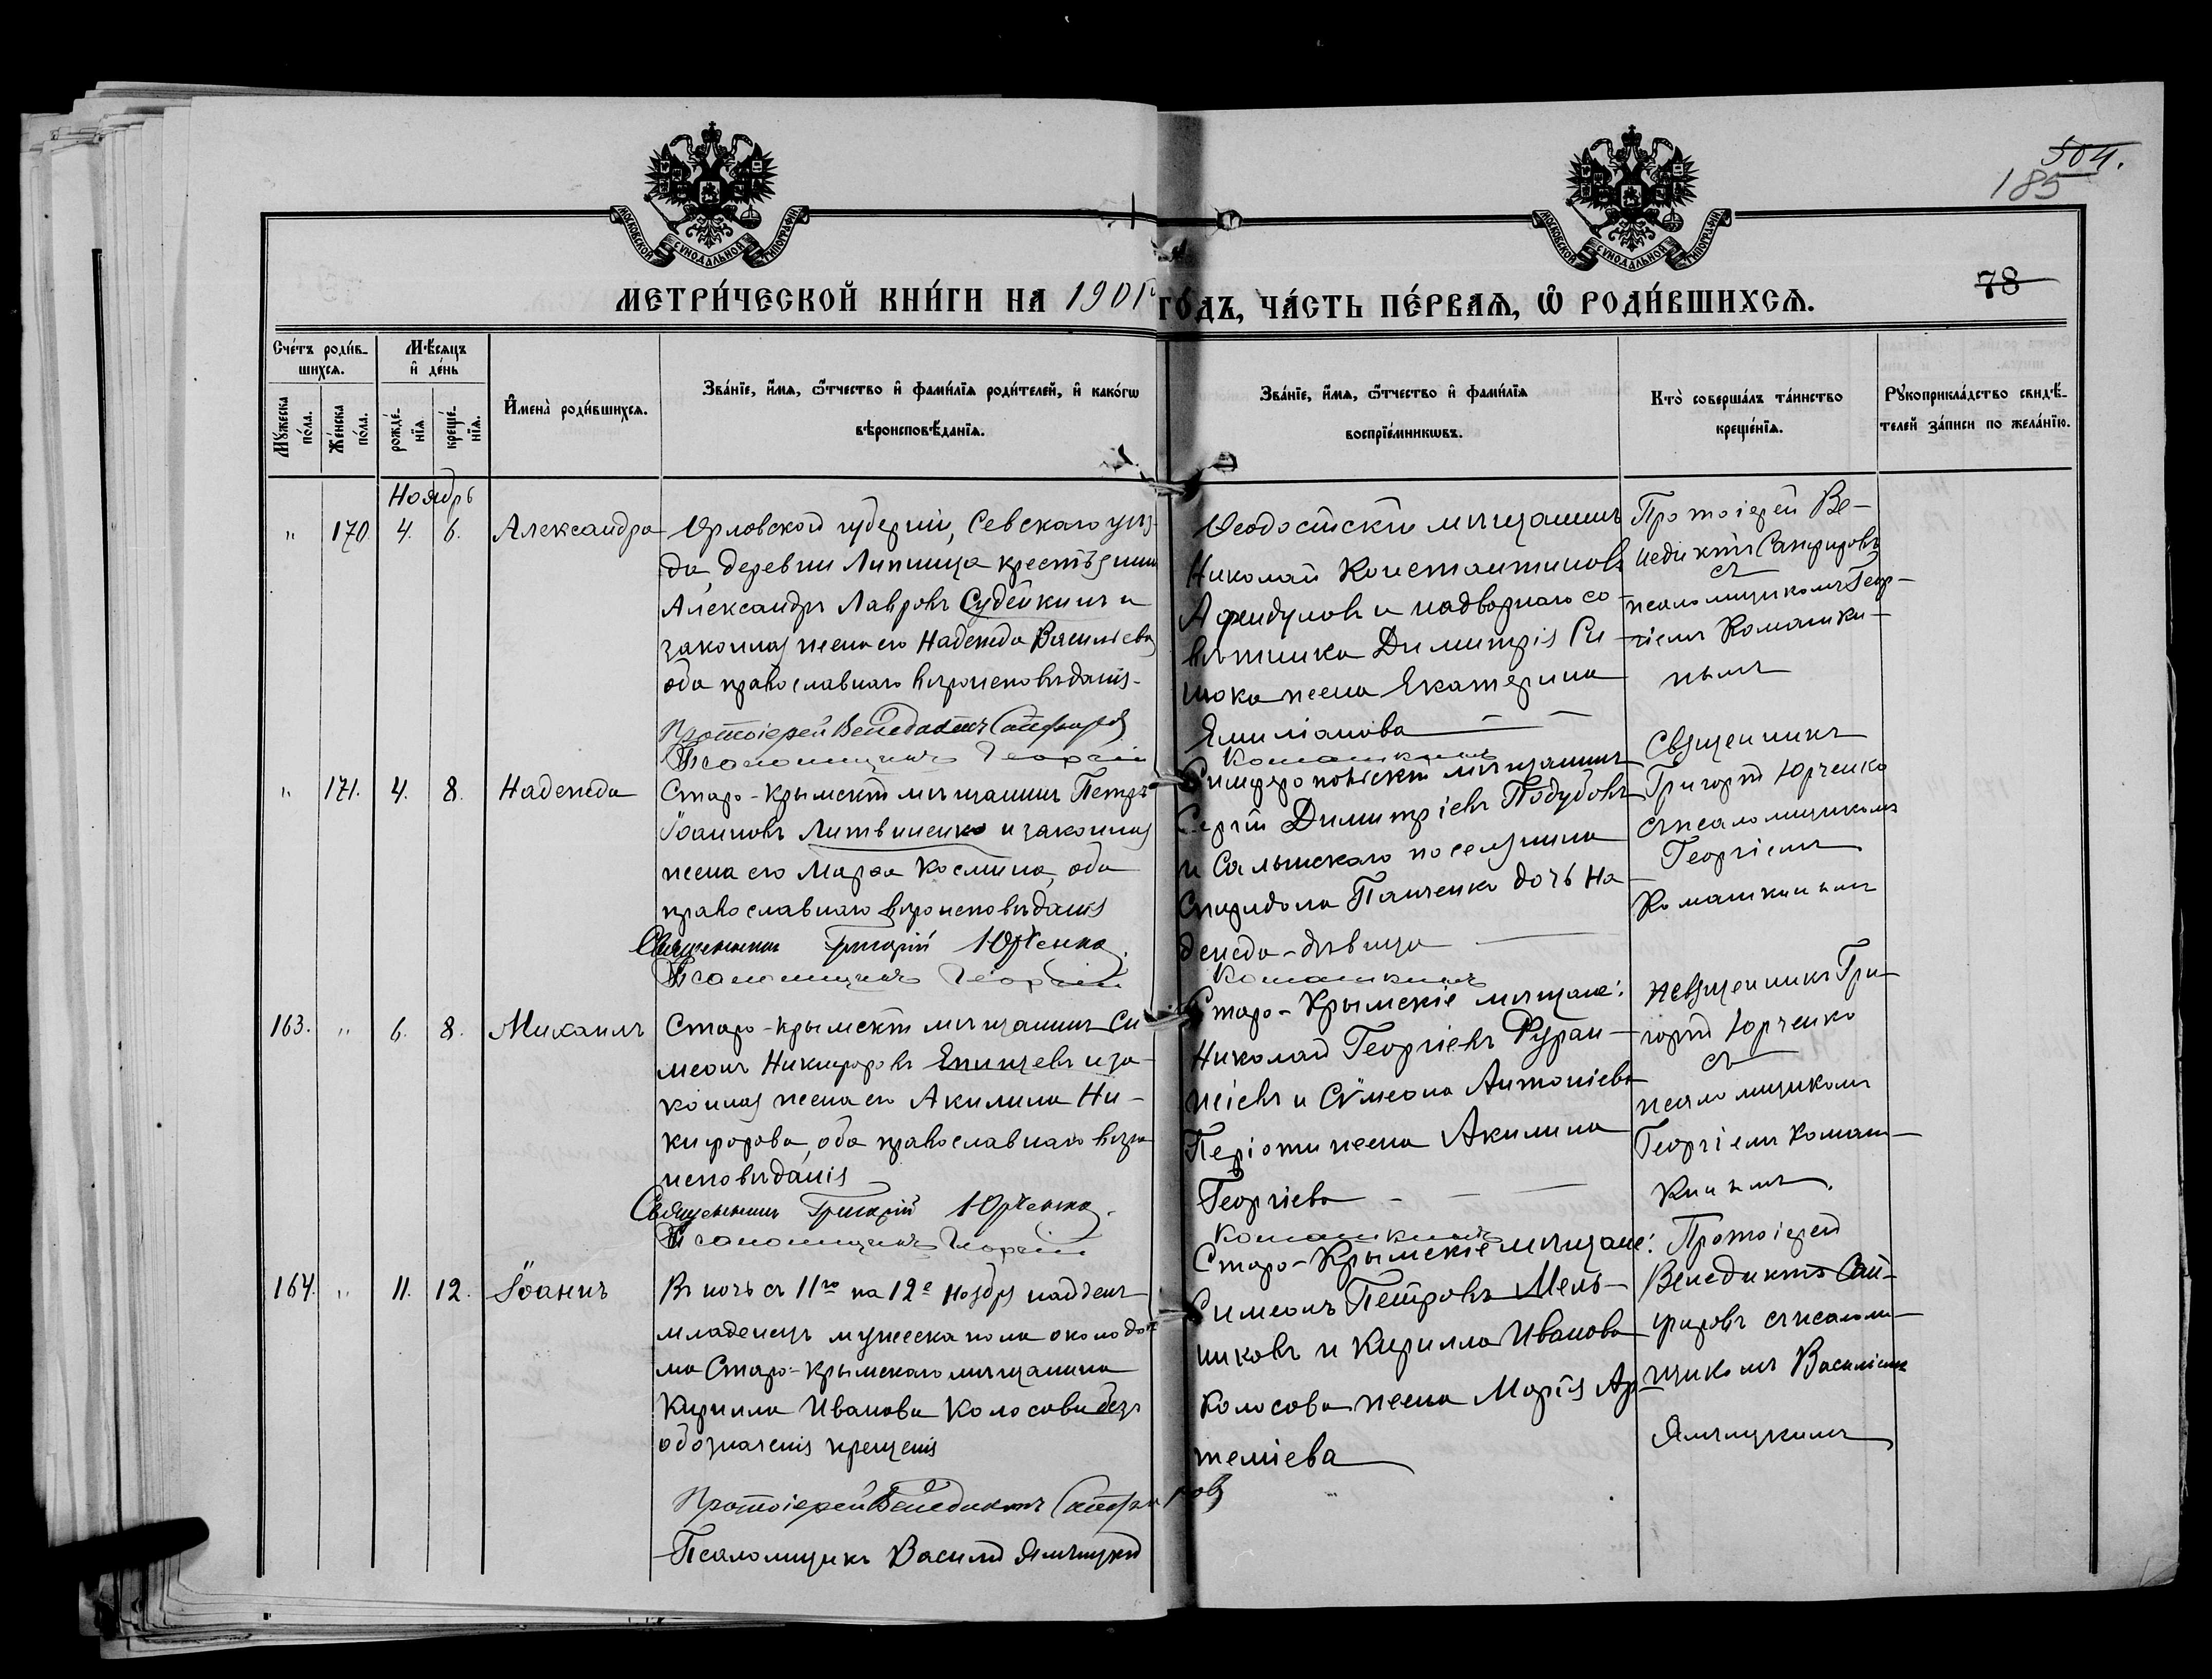 504.
185
78
МОСКОВСКОЙ СУНОДАЛЬНОЙ ТИПОГРАФІИ
МОСКОВСКОЙ СУНОДАЛЬНОЙ ТИПОГРАФІИ
МЕТРИ́ЧЕСКОЙ КНИ́ГИ НА 1901 ГО́ДЪ, ЧА́СТЬ ПЕ́РВАѦ, Ѡ РОДИ́ВШИХСѦ.
Сче́тъ роди́в-
шихсѧ.
Мꙋ́жеска по́ла.
Же́нска по́ла.
Мѣ́сяцъ
и҆ де́нь
рожде́-
нїѧ.
креще́-
нїѧ.
И҆мена̀ роди́вшихсѧ.
Зва́нїе, и҆́мѧ, ѻ҆́тчество и҆ фами́лїѧ роди́телей, и҆ како́гѡ
вѣроисповѣ́данїѧ.
Зва́нїе, и҆́мѧ, ѻ҆́тчество и҆ фами́лїѧ
воспрїе́мникѡвъ.
Кто̀ соверша́лъ та́инство
креще́нїѧ.
Рꙋкоприкла́дство свидѣ́-
телей за́писи по жела́нїю.
Ноябрь
" 170 4. 6. Александра
Орловской губерніи, Севскаго уѣз-
да, деревни Липница крестьянинъ
Александръ Лавровъ Судейкинъ и
законная жена его Надежда Васильева
оба православнаго вѣроисповѣданія.
Протоіерей Венедиктъ Сапфировъ
Псаломщикъ Георгій Комашкинъ
Ѳеодосійскій мѣщанинъ
Николай Константиновъ
Афендуловъ и надворнаго со-
вѣтника Димитрія Си-
нока жена Екатерина
Емиліанова
Протоіерей Ве-
недиктъ Сапфировъ
съ
псаломщикомъ Геор-
гіемъ Комашки-
нымъ
" 171. 4. 8. Надежда
Старо-Крымскій мѣщанинъ Петръ
Іоанновъ Литвиненко и законная
жена его Марѳа Космина, оба
православнаго вѣроисповѣданія
Священникъ Григорій Юрченко.
Псаломщикъ Георгій Комашкинъ
Симферопольскій мѣщанинъ
Сергій Димитріевъ Поддубовъ
и Салынскаго поселянина
Спиридона Панченко дочь На-
дежда-дѣвица
Священникъ
Григорій Юрченко
съ псаломщикомъ
Георгіемъ
Комашкинымъ
163. " 6. 8. Михаилъ
Старо-Крымскій мѣщанинъ Си-
меонъ Никифоровъ Епищевъ и за-
конная жена его Акилина Ни-
кифорова, оба православнаго вѣро
исповѣданія
Священникъ Григорій Юрченко.
Псаломщикъ Георгій Комашкинъ
Старо-Крымскіе мѣщане:
Николай Георгіевъ Фуран-
жіевъ и Сѵмеона Антоніева
Періоти жена Акилина
Георгіева
Священникъ Гри-
горій Юрченко
съ
псаломщикомъ
Георгіемъ Комаш-
кинымъ.
164. " 11. 12. Іоаннъ
Въ ночь съ 11го на 12е Ноября найденъ
младенецъ мужеска пола около до-
ма Старо-Крымскаго мѣщанина
Кирилла Иванова Колосова безъ
обозначенія крещенія
Протоіерей Венедиктъ Сапфировъ
Псаломщикъ Василій Ямпицкій
Старо-Крымскіе мѣщане:
Симеонъ Петровъ Мель-
никовъ и Кирилла Иванова
Колосова жена Марія Ар-
теміева
Протоіерей
Венедиктъ Сап-
фировъ съ псалом-
щикомъ Василіемъ